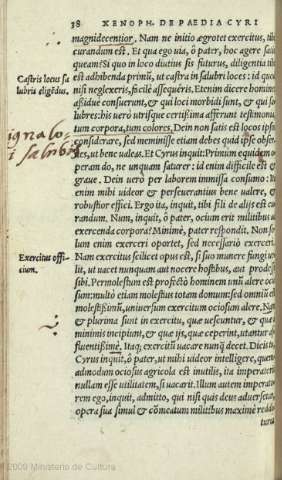 38 XENOPH. DE PAEDIA CYRI
magnidecentior. Nam ne initio ægrotet exercitus, tibi
curandum est. Et qua ego uia, ô pater, hoc agere sali
queam? Si quo in loco diutius sis futurus, diligentia tibi
Castris locus sa
est adhibenda primũ, ut castra in salubri loces: id quod
lubris eligẽdus.
nisi neglexeris, facile assequêris. Etenim dicere homines
aßidue consuerunt, & qui loci morbidi sunt, & qui sa
lubres: his uerò utrisque certißima afferunt testimonia,
tum corpora, tum colores. Dein non satis est locos ipsos
considerare, sed meminisse etiam debes quid ipse obser
ues, ut bene ualeas. Et Cyrus inquit: Primum equidem
operam do, ne unquam saturer: id enim difficile est &
graue. Dein uerò per laborem immissa consumo: ita
enim mihi uideor & perseuerantius bene ualere, &
robustior effici. Ergo ita, inquit, tibi fili de alijs est cu
randum. Num, inquit, ô pater, ocium erit militibus ad
exercenda corpora? Minimè, pater respondit. Non so
lum enim exerceri oportet, sed necessariò exercen
Exercitus offi
cium.
Nam exercitus scilicet opus est, si suo munere fungi ue
lit, ut uacet nunquam aut nocere hostibus, aut prodesse
sibi. Permolestum est profectò hominem unũ alere ocio
sum: multò etiam molestius totam domum: sed omniũ est
molestißimũ, uniuersum exercitum ociosum alere. Nam
& plurima sunt in exercitu, quæ uescuntur, & quæ
minimis incipiunt, & quæ ijs, quæ ceperint, utantur af
fluentißimè. Itaq; exercitũ uacare nunq̃ decet. Dicis tu,
Cyrus inquit, ô pater, ut mihi uidere intelligere, quem
admodum ociosus agricola est inutilis, ita imperatorem
nullam esse utilitatem, si uacarit. Illum autem imperato
rem ego, inquit, admitto, qui nisi quis deus aduersetur,
opera sua simul & cõmeatum militibus maximè reddi
turus
©2009 Ministerio de Cultura